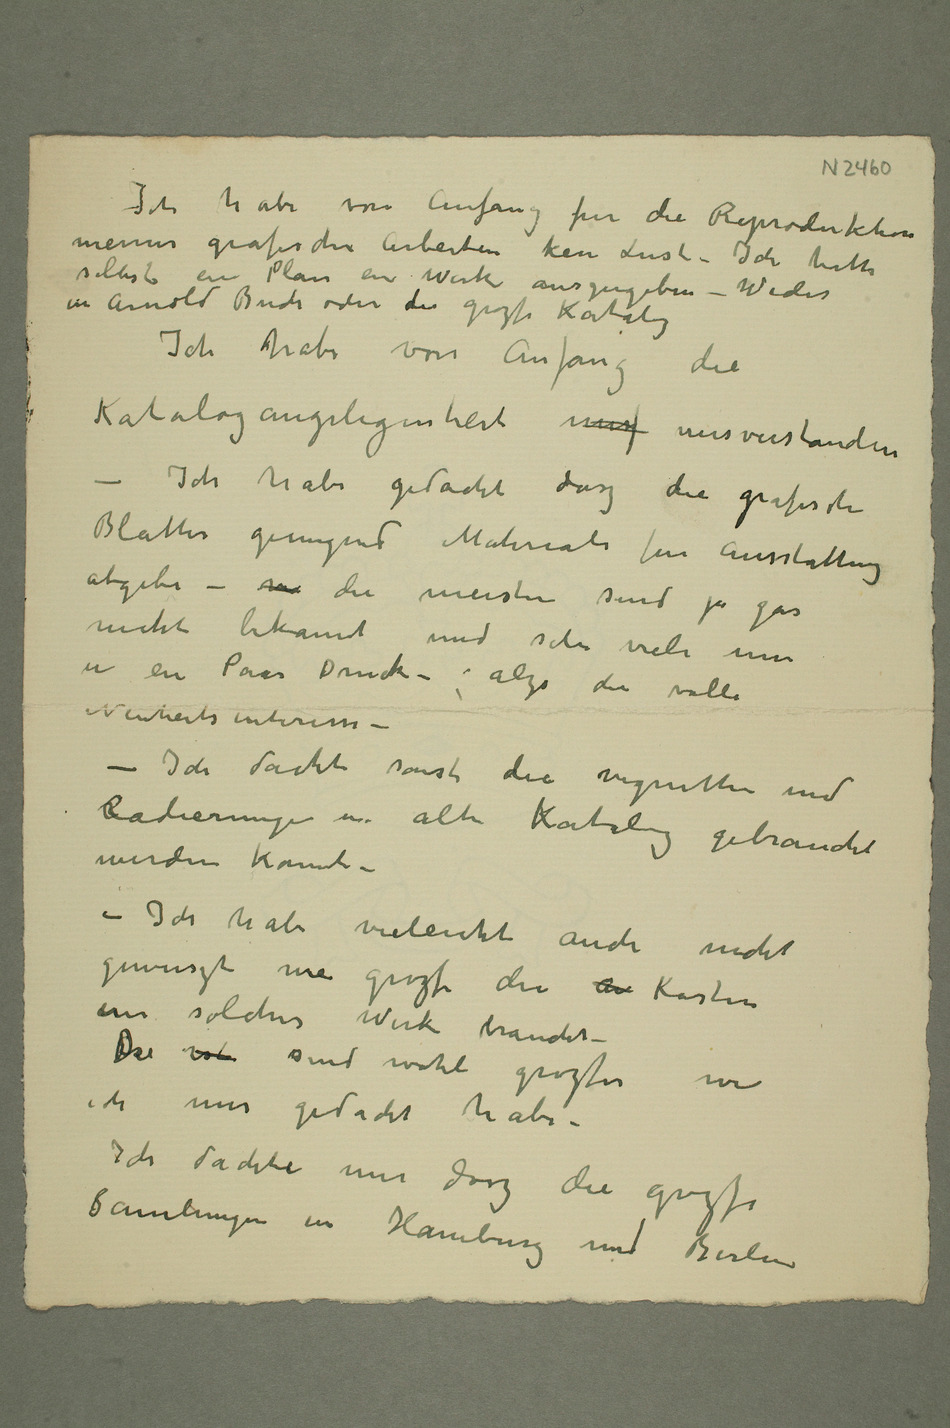 N 2460
Ich habe von Anfang für die Reproduktion
meiner grafischen Arbeiten kein Lust – Ich hatte
selbst ein Plan ein Werk auszugeben – Weder
in Arnold Buch oder die groze Katalog
Ich habe von Anfang die
Katalogangelegenheit misverstanden
– Ich habe gedacht dasz die grafische
Blatter genugend Materiale für Ausstattung
abgebe – die meisten sind ja gar
nicht bekannt und sehr viele nur
in ein Paar Druck – also die volle
Neuheitsinteresse –
– Ich dachte sonst die vignetten und
Radierungen in alte Katalog gebraucht
werden konnte –
– Ich habe vieleicht auch nicht
gewuszt wie grosze die Kosten
ein solches Werk brauchet –
Die sind wohl groszer wie
ich mir gedacht habe –
Ich dachte mir dasz die grosze
Samlungen in Hamburg und Berlin